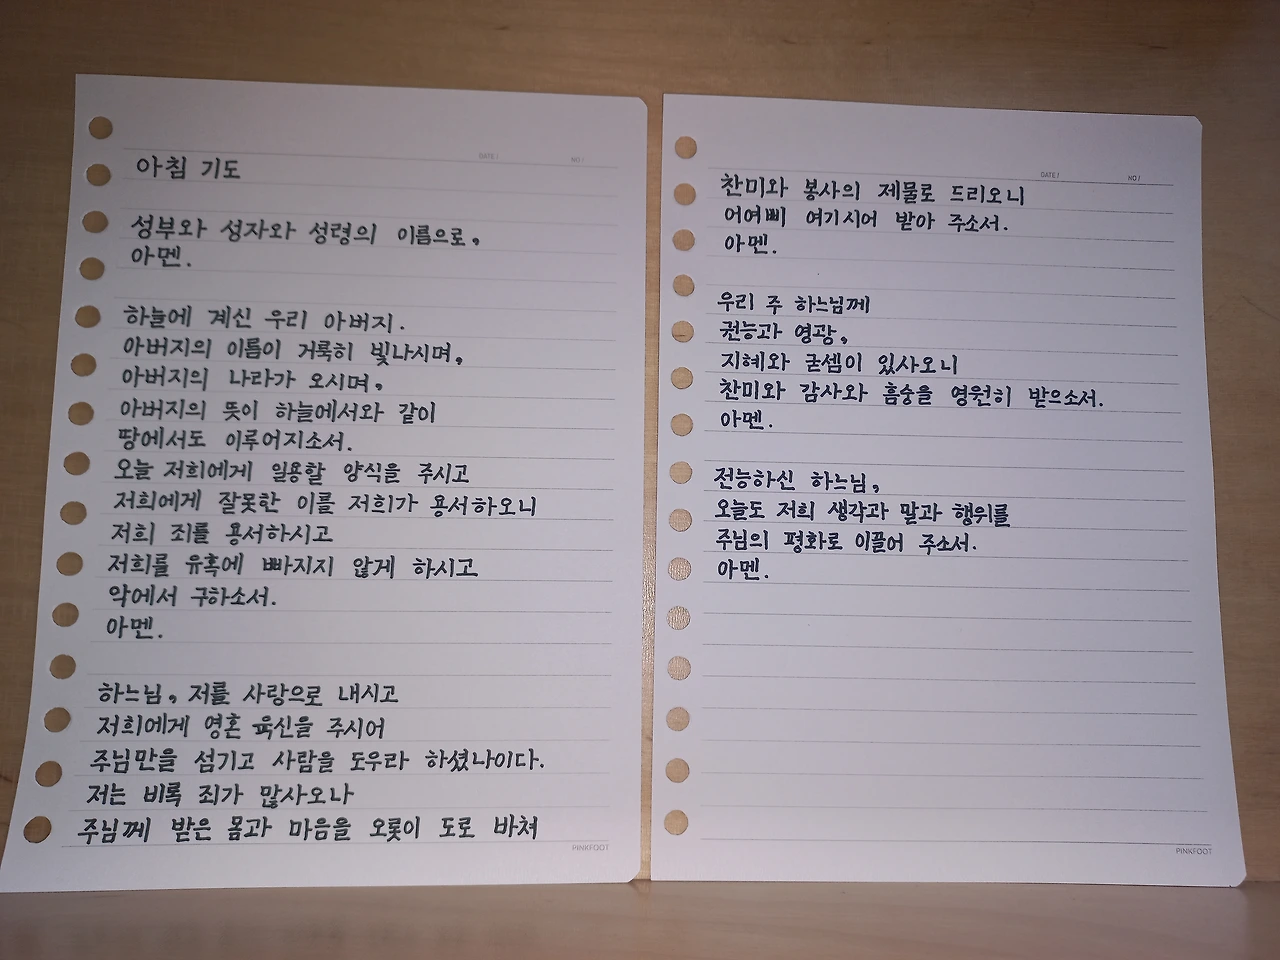 DATE / NO /
아침 기도
성부와 성자와 성령의 이름으로,
아멘.
하늘에 계신 우리 아버지.
아버지의 이름이 거룩히 빛나시며,
아버지의 나라가 오시며,
아버지의 뜻이 하늘에서와 같이
땅에서도 이루어지소서.
오늘 저희에게 일용할 양식을 주시고
저희에게 잘못한 이를 저희가 용서하오니
저희 죄를 용서하시고
저희를 유혹에 빠지지 않게 하시고
악에서 구하소서.
아멘.
하느님, 저를 사랑으로 내시고
저희에게 영혼 육신을 주시어
주님만을 섬기고 사람을 도우라 하셨나이다.
저는 비록 죄가 많사오나
주님께 받은 몸과 마음을 오롯이 도로 바쳐
PINKFOOT
DATE / NO /
찬미와 봉사의 제물로 드리오니
어여삐 여기시어 받아 주소서.
아멘.
우리 주 하느님께
권능과 영광,
지혜와 굳셈이 있사오니
찬미와 감사와 흠숭을 영원히 받으소서.
아멘.
전능하신 하느님,
오늘도 저희 생각과 말과 행위를
주님의 평화로 이끌어 주소서.
아멘.
PINKFOOT